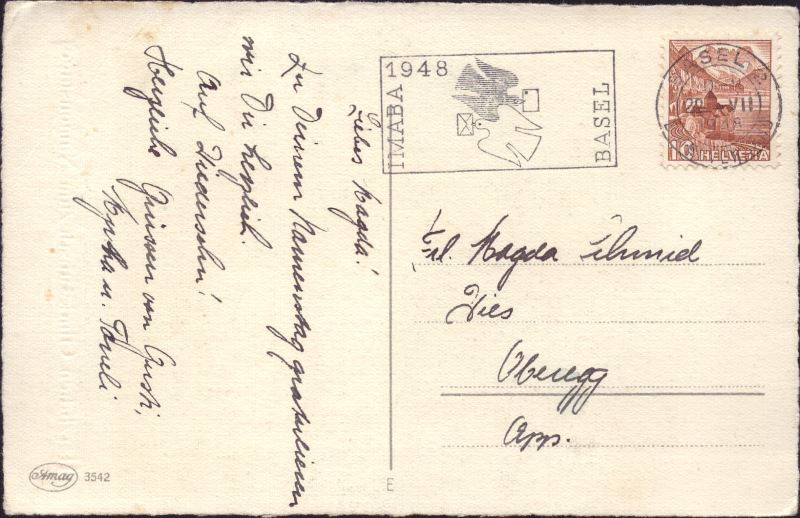 Liebes Magda!
Zu Deinem Namenstag gratulieren
wir Dir herzlich.
Auf Wiedersehn!
Herzliche Grüssen von Gusti,
u.
Amag 3542
IMABA 1948 BASEL
BASEL 2
VII
HELVETIA
Frl. Magda Schmid
Oberegg
App.
E